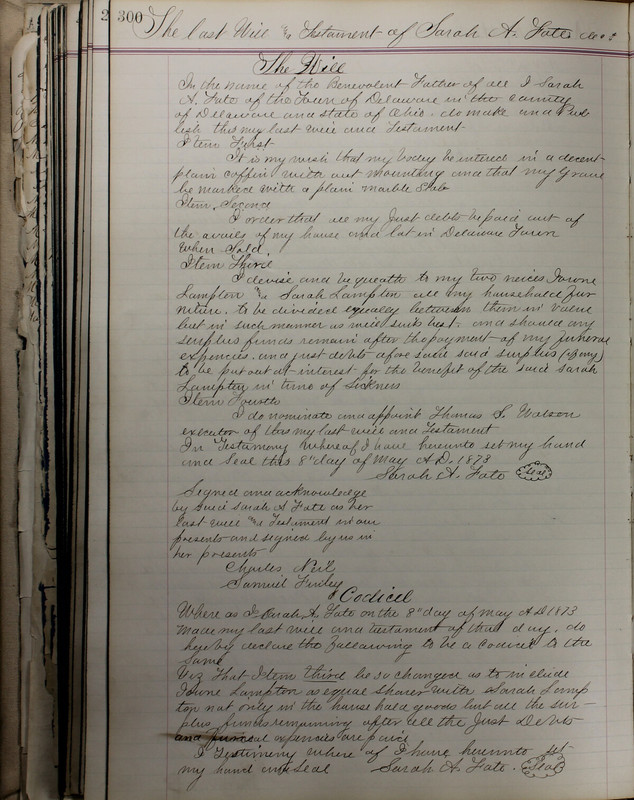 2 300
The Last Will & Testament of Sarah A. Fate Dec'd
The Will
In the name of the Benevolent Father of all I Sarah
A. Fate of the Town of Delaware in the County
of Delaware and state of Ohio. do make and Pub
lish this my last will and Testament-
Item First
It is my wish that my body be intered in a decent
plain coffin with out mounting and that my grave
be marked with a plain marble Slab
Item, Second
I order that all my Just debts be paid out of
the avails of my house and lot in Delaware Town
When Sold.
Item Third
I devise and bequeath to my two neices
Lampton & Sarah Lampton all my household fur
niture, to be divided equally between them in value
but in such manner as will suit best. and should any
surplus funds remain after the payment of my funeral
expences. and just debts afore said said surplus (if any)
to be put out at interest for the benefit of the said Sarah
Lampton in time of Sickness
Item Fourth
I do nominate and appoint Thomas S. Watson
executor of this my last will and Testament
In Testimony Whereof I have hereunto set my hand
and Seal this 8" day of May A.D. 1873
Sarah A. Fate Seal
Signed and acknowledge
by said Sarah A Fate as her
last will & Testament in our
presents and signed by us in
her presents
Charles Neil
Samuel Finley
Codicil
Where as I Sarah A. Fate on the 8" day of May A D 1873
made my last will and testament of that day. do
hereby declare the following to be a Codicil to the
same
Viz That Item third be so changed as to include
Lampton as equal sharer with Sarah Lamp
ton not only in the house hold goods but all the sur-
plus funds remaining after all the Just Debts
and funeral expencies are paid
I Testimony where of I have hereunto set
my hand and Seal Sarah A. Fate. Seal